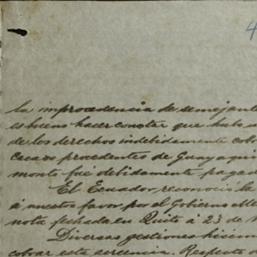 4
la improcedencia de semejante
es bueno hacer constar que hubo
de los derechos indebidamente cob
cacaos procedentes de Guayaqui
monto fué debidamente pagad
El Ecuador reconoció la
á nuestro favor por el Gobierno
nota fechada en Quito á 23 de
Diversas gestiones hicim
cobrar esta acreencia. Respecto